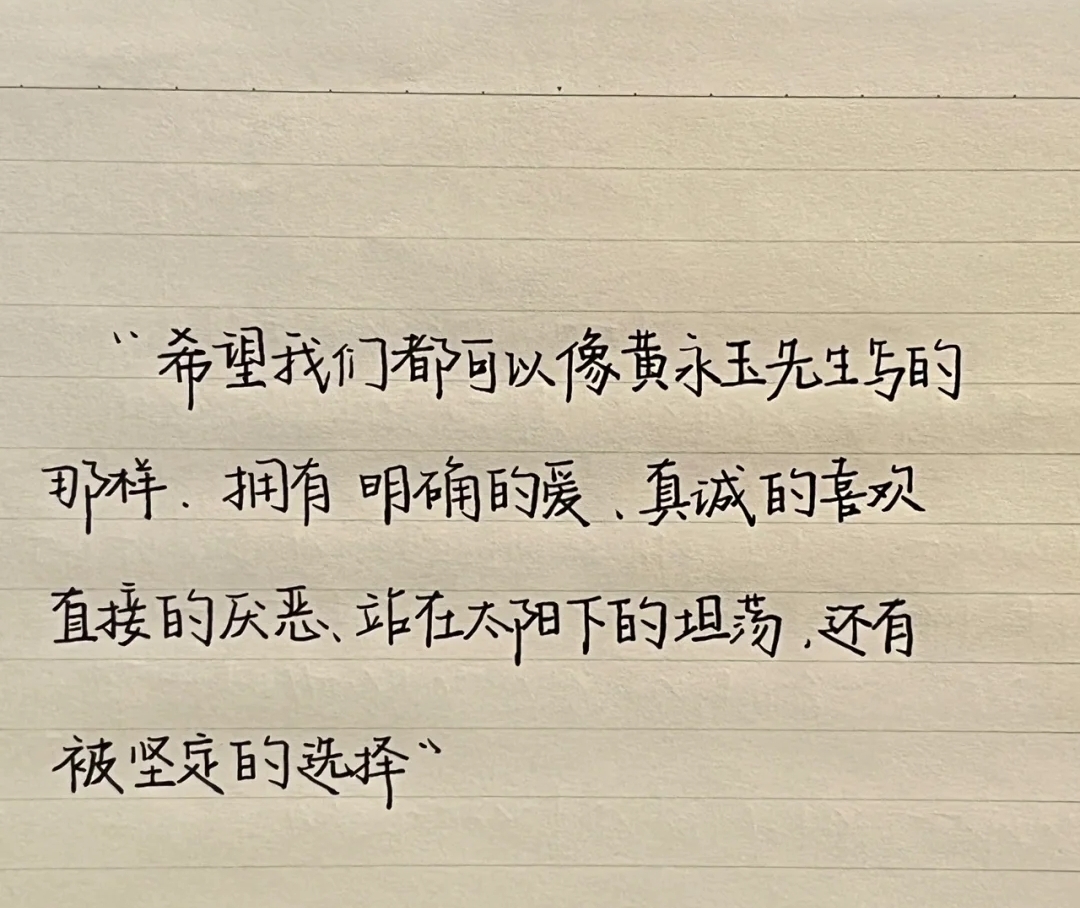 “希望我们都可以像黄永玉先生写的
那样、拥有明确的爱、真诚的喜欢
直接的厌恶、站在太阳下的坦荡,还有
被坚定的选择”